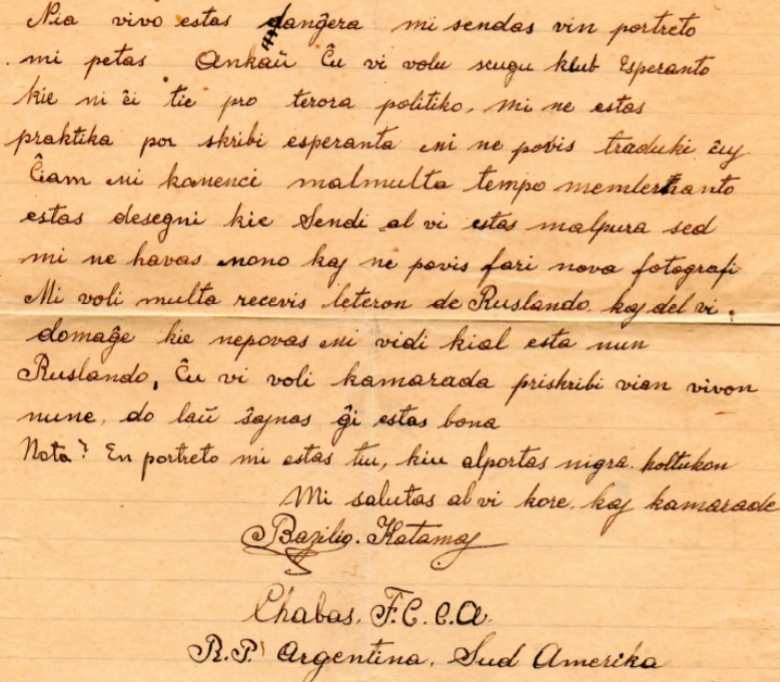 Nia vivo estas danĝera mi sendas vin portreto
mi petas Ankaŭ Ĉu vi volu scugu klub Esperanto
kie ni ĉi tie pro terora politiko, mi ne estas
praktika por skribi esperanta mi ne povis traduki ĉuj
Ĉiam mi komenci malmulta tempo
estas desegni kie Sendi al vi estas malpura sed
mi ne havas mono kaj ne povis fari nova fotografi
Mi voli multa recevis leteron de Ruslando, kaj del vi.
domaĝe kie nepovas mi vidi kial esta nun
Ruslando, Ĉu vi voli kamarada priskribi vian vivon
nune, do laŭ ŝajnas ĝi estas bona
Nota? En portreto mi estas tiu, kiu alportas nigra koltukon
Mi salutas al vi kore, kaj kamarade
Bazilio. Katamaj
Chabas. F.C.C.A.
R.P. Argentina. Sud Amerika